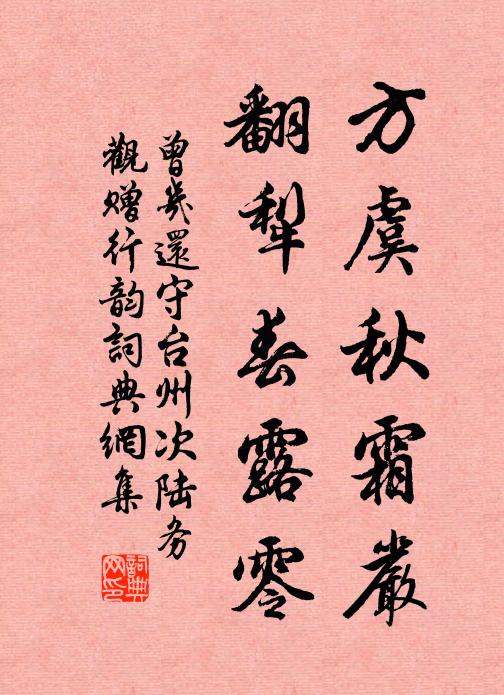 方虞秋霜嚴
翻犁春露零
曾幾還守台州次陆务
觀赠行韵詞典網集
詞典网印